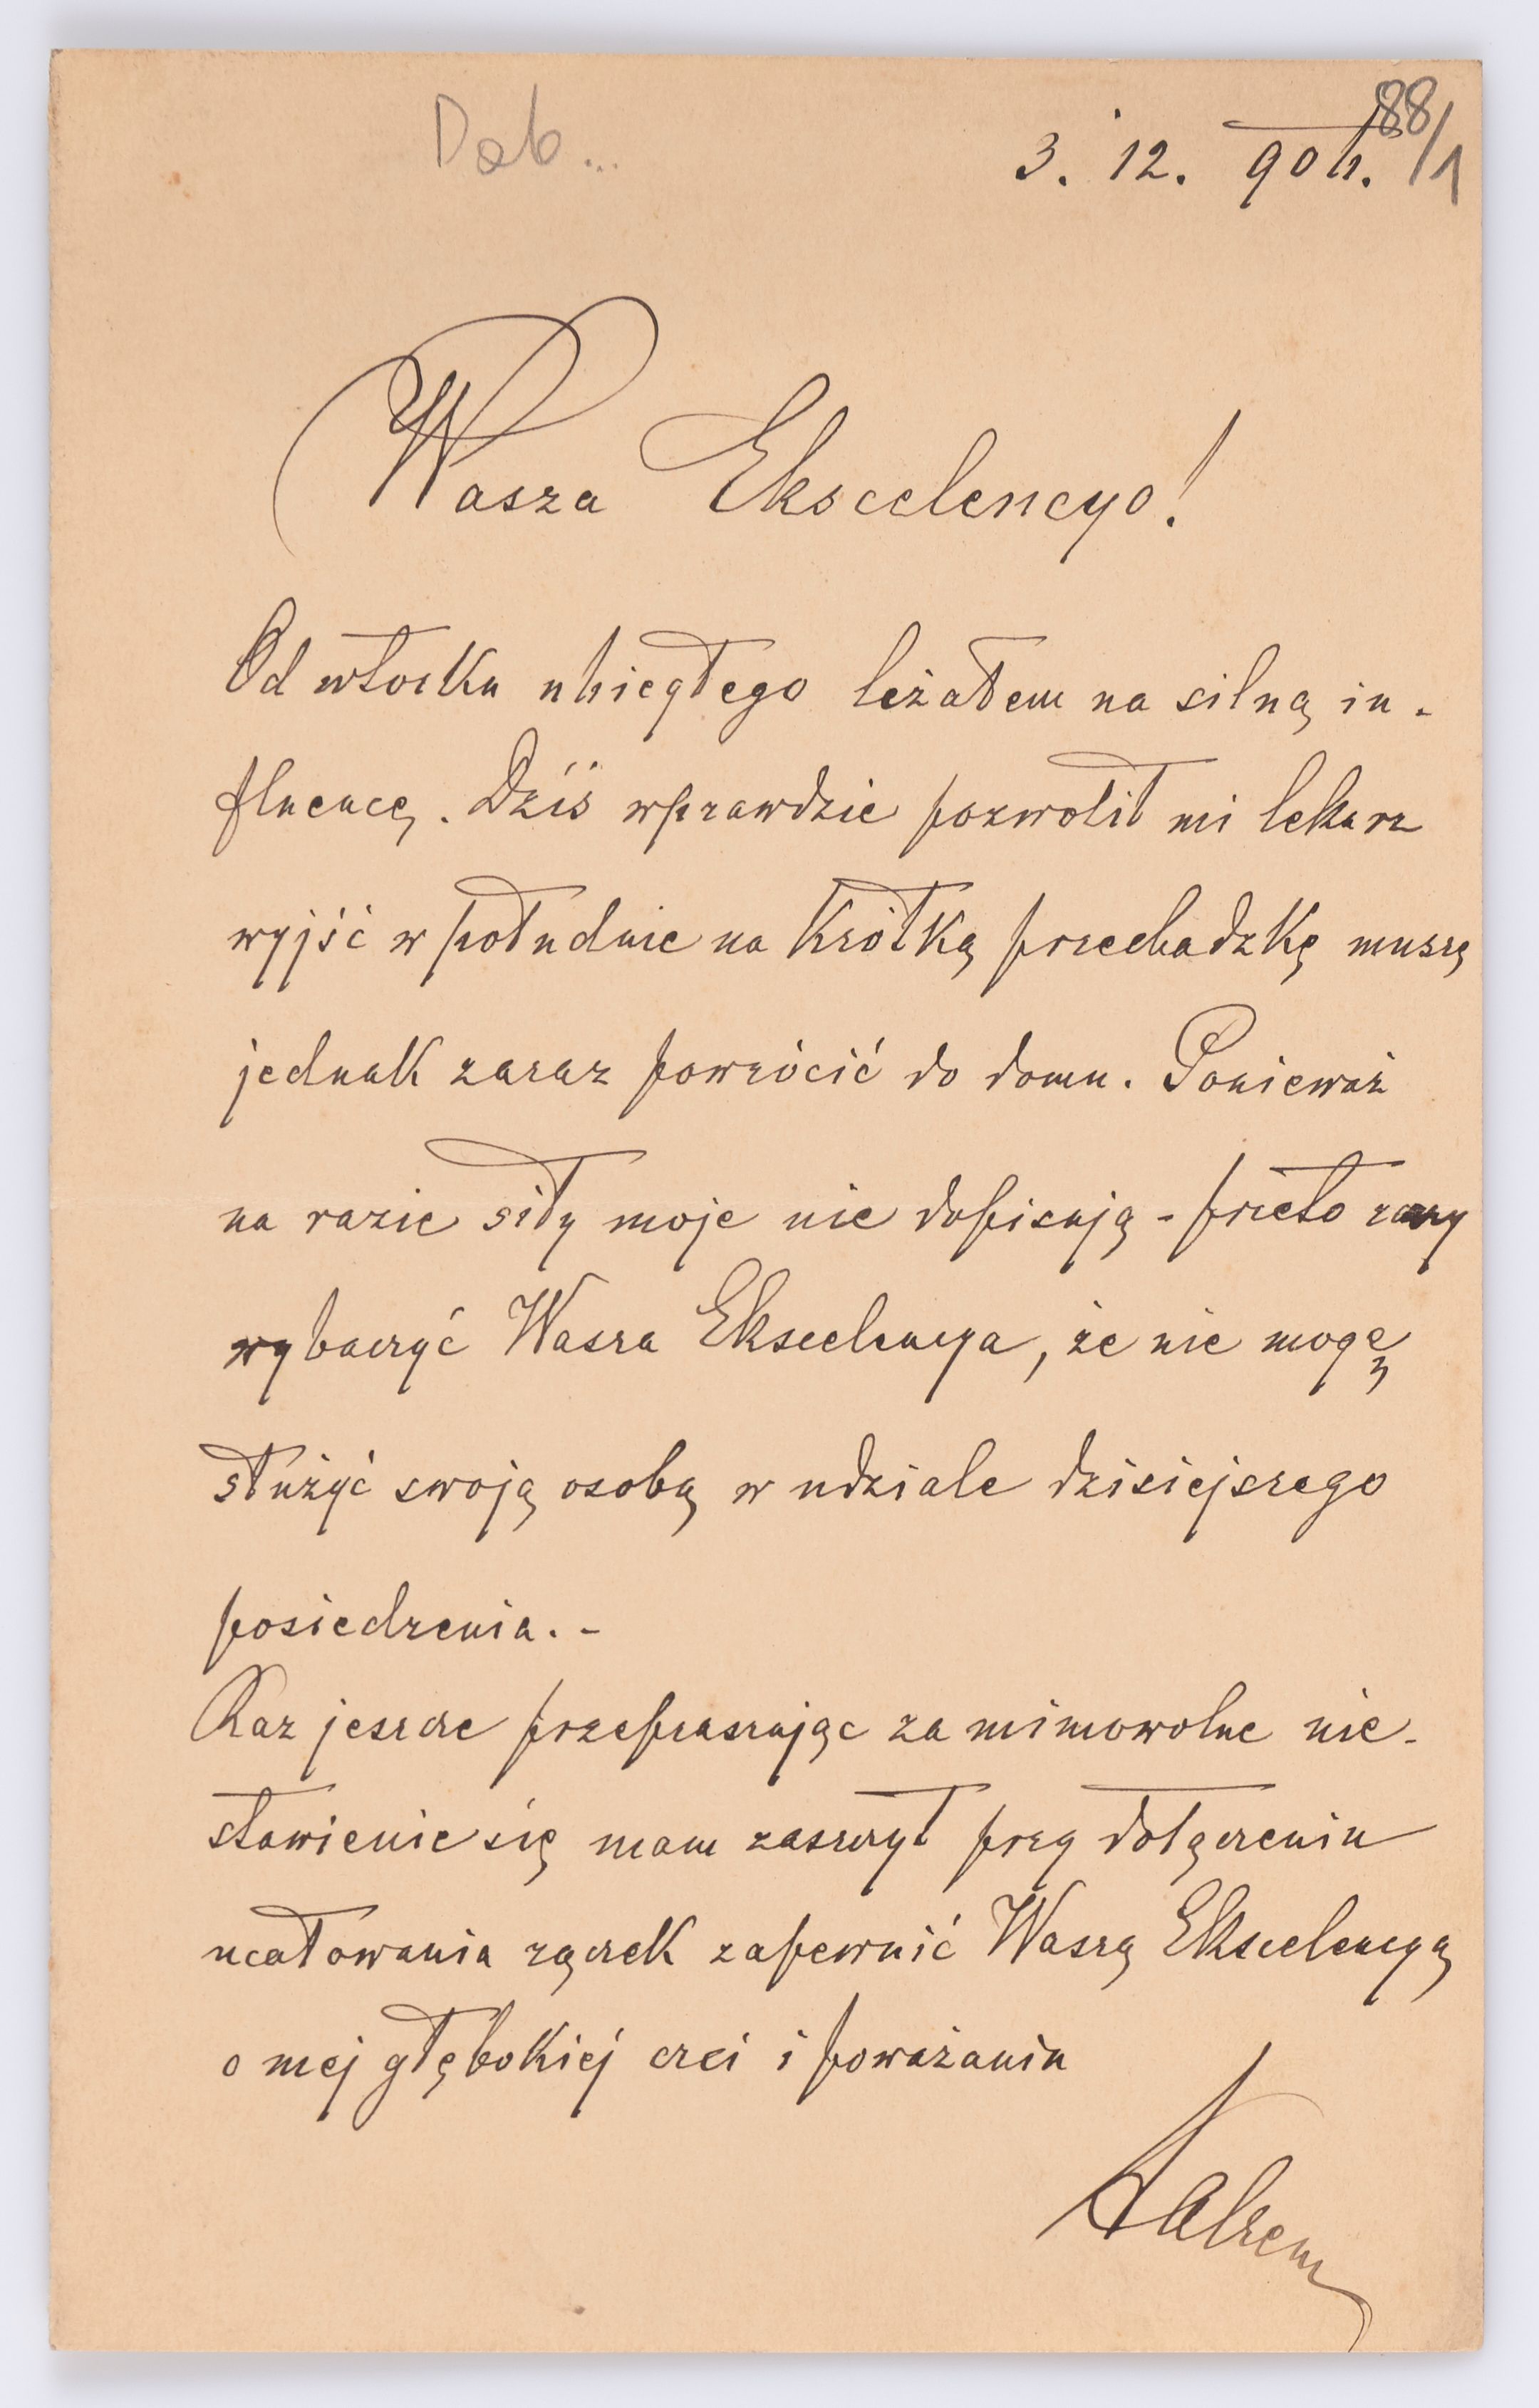 Dąb...
88/1
3. 12. 90 r.
Wasza Ekscelencyo!
Od wtorku ubiegłego leżałem na silną in-
fluencę. Dziś wprawdzie pozwolił mi lekarz
wyjść w południe na krótką przechadzkę muszę
jednak zaraz powrócić do domu. Ponieważ
na razie siły moje nie dopisują - przeto raczy
wybaczyć Wasza Ekscelencya, że nie mogę
służyć swoją osobą w udziale dzisiejszego
posiedzenia. -
Raz jeszcze przepraszając za mimowolne nie-
stawienie się mam zaszczyt przy dołączeniu
ucałowania rączek zapewnić Waszą Ekscelencyą
o mej głębokiej czci i poważaniu